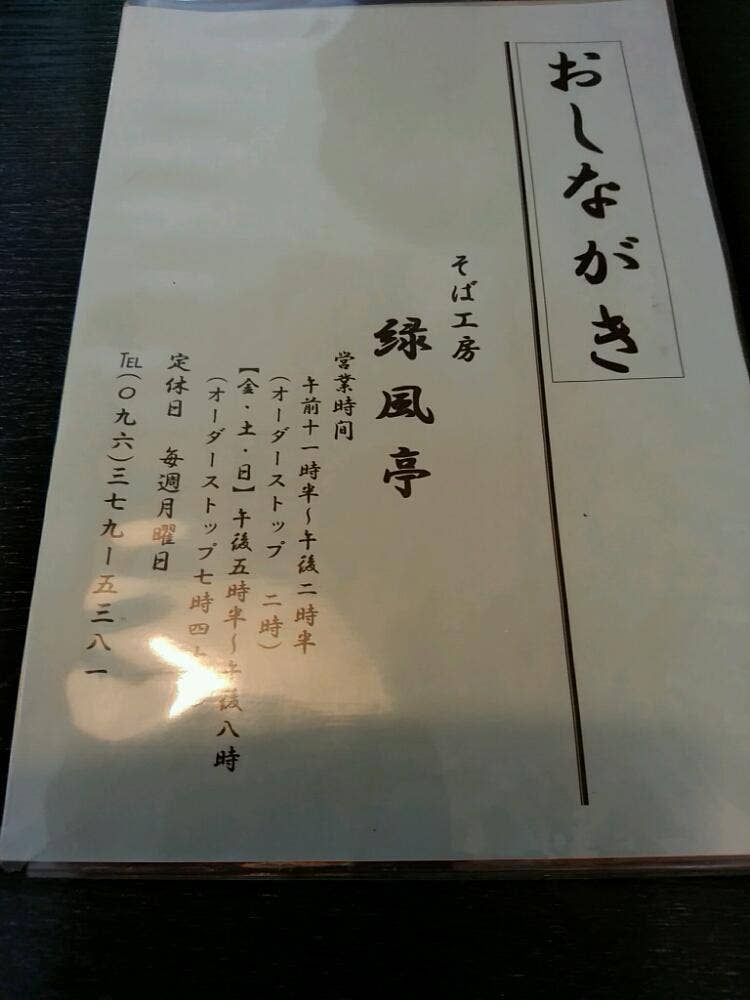 おしながき
そば工房
緑風亭
営業時間
午前十一時半～午後二時半
(オーダーストップ 二時)
【金・土・日】午後五時半～午後八時
(オーダーストップ七時四
定休日 毎週月曜日
TEL(〇九六)三七九ー五三八一